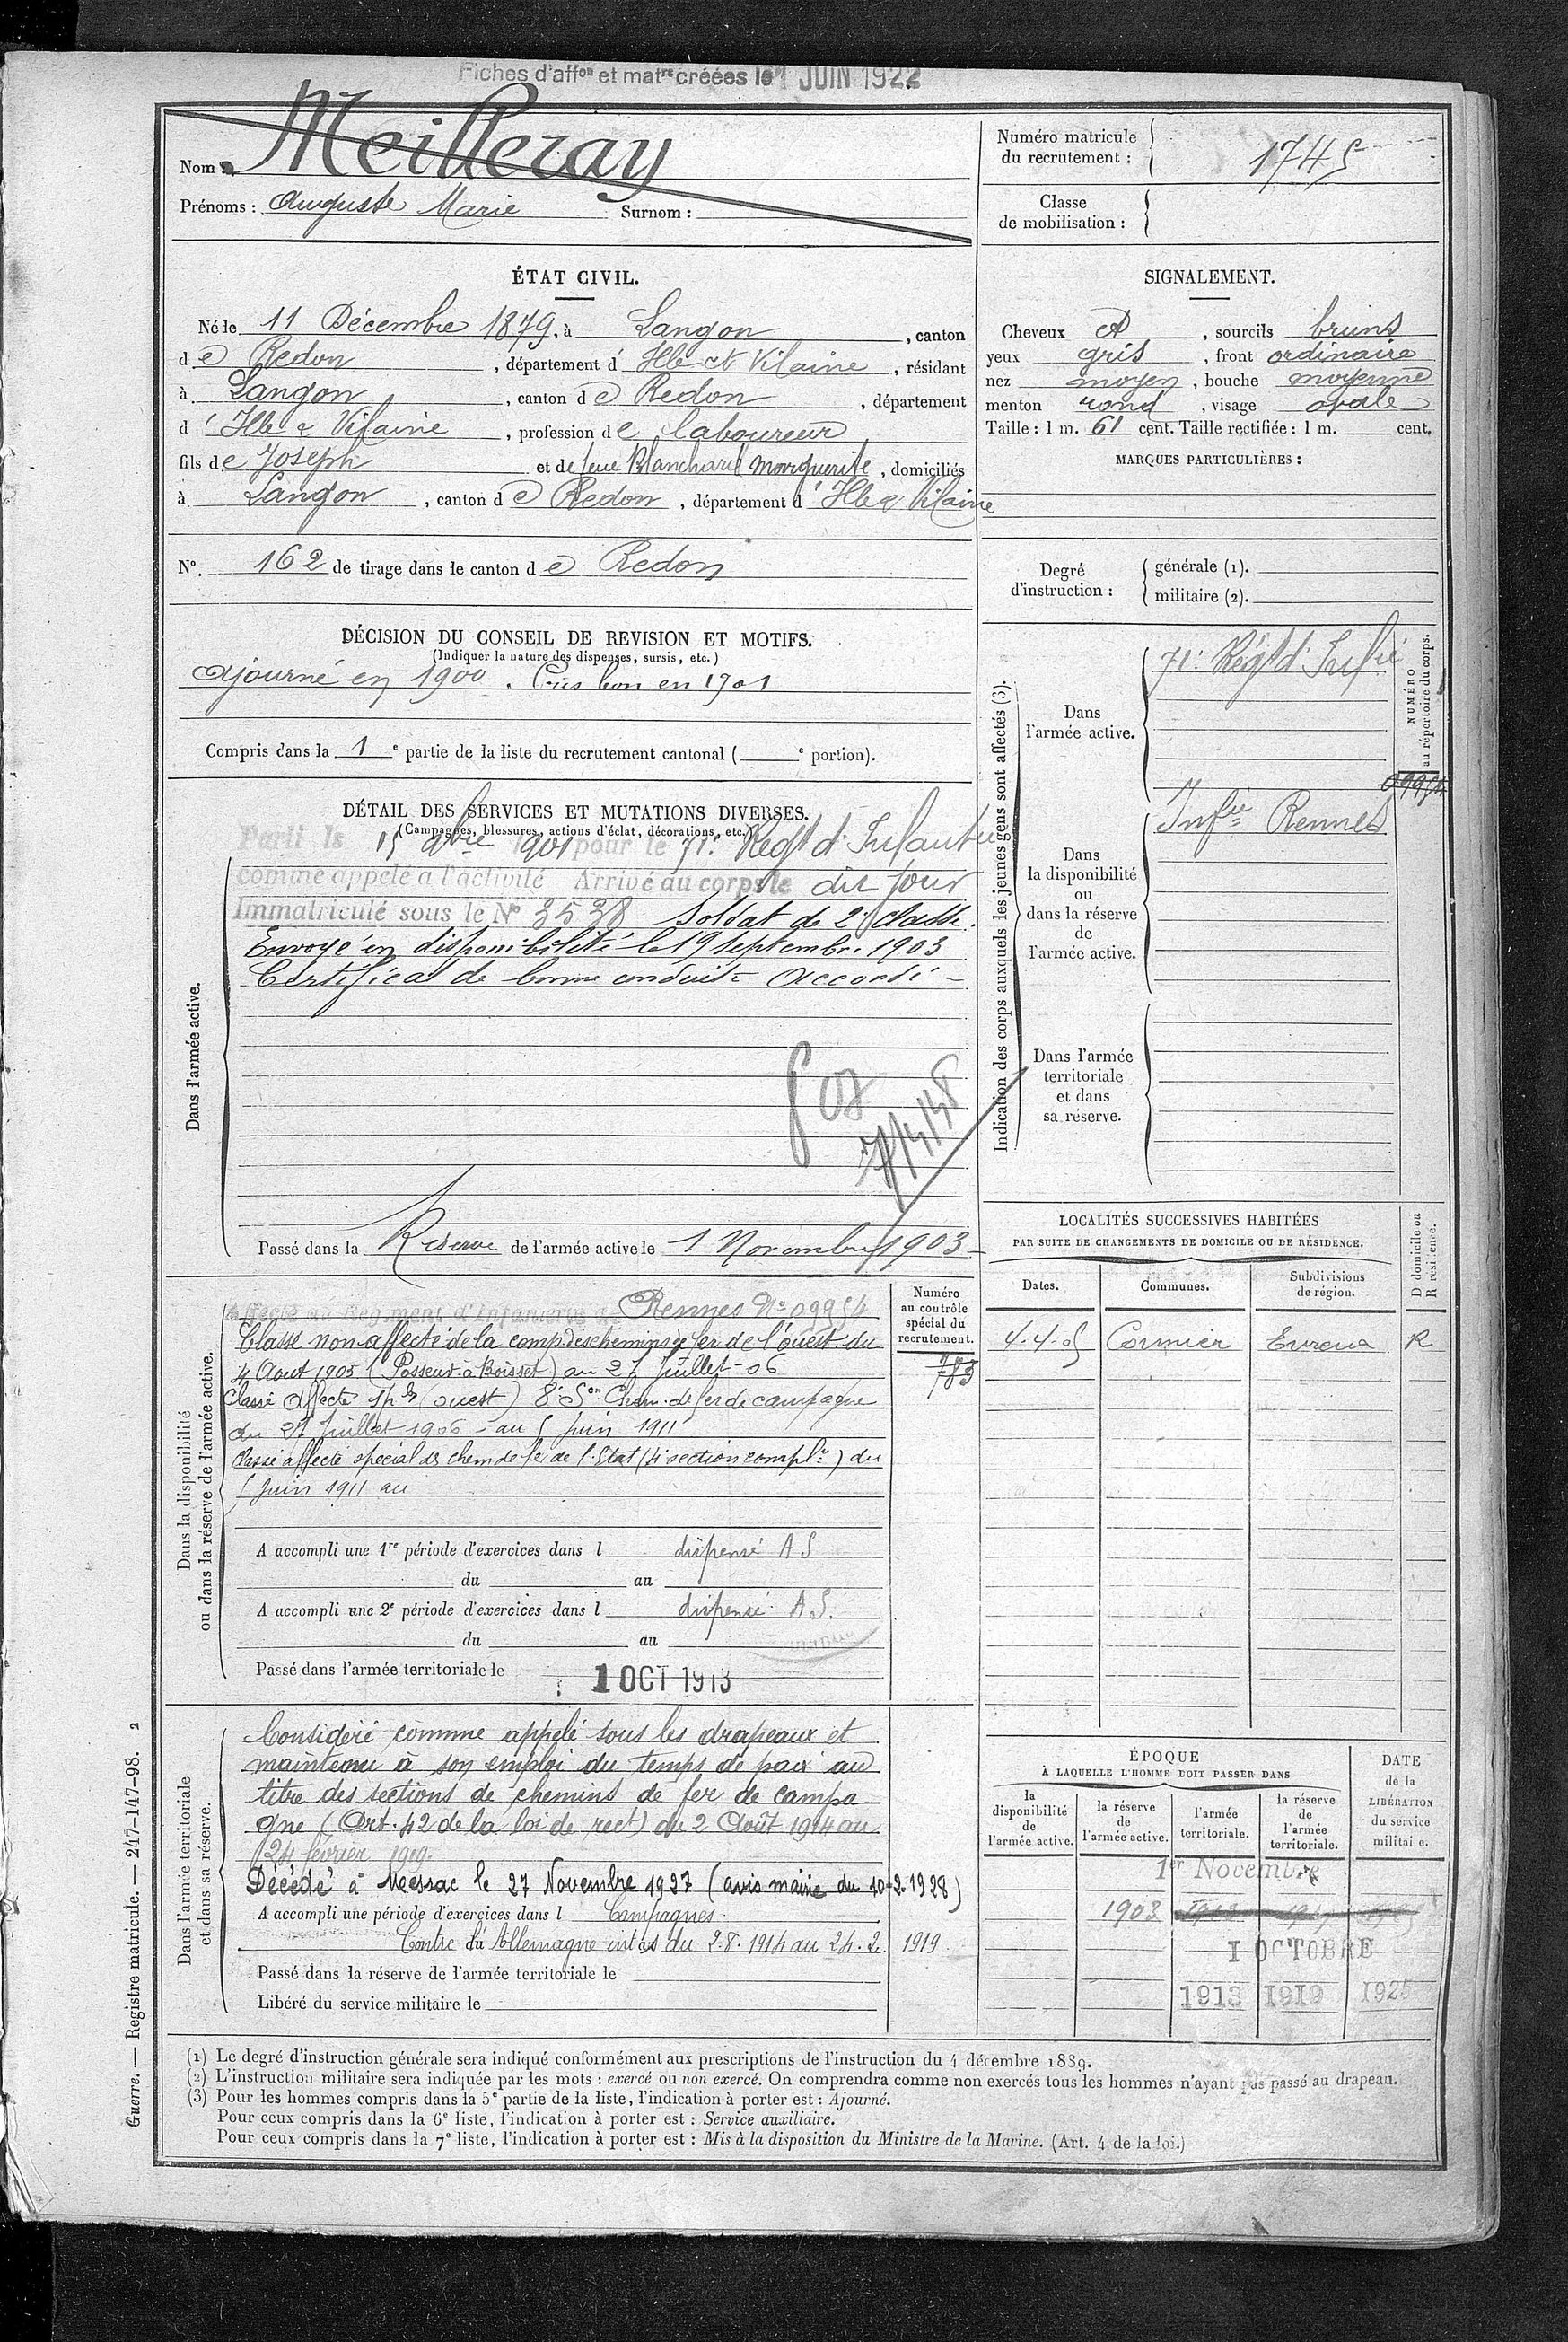 Fiches d'affon et matre créées le 1 JUIN 1922
Nom : Meilleray
Prénoms : Auguste Marie Surnom :
Numéro matricule
du recrutement : 1745
Classe
de mobilisation :
ÉTAT CIVIL.
Né le 11 Décembre 1879, à Langon, canton
de Redon, département d'Ille-et-Vilaine, résidant
à Langon, canton de Redon, département
d'Ille & Vilaine, profession de laboureur
fils de Joseph et de feue Blanchard Marguerite, domiciliés
à Langon, canton de Redon, département d'Ille & Vilaine
N°. 162 de tirage dans le canton de Redon
SIGNALEMENT.
Cheveux et, sourcils bruns
yeux gris, front ordinaire
nez moyen, bouche moyenne
menton rond, visage ovale
Taille : 1 m. 61 cent. Taille rectifiée : 1 m. cent.
MARQUES PARTICULIÈRES :
Degré
d'instruction :
générale (1).
militaire (2).
DÉCISION DU CONSEIL DE REVISION ET MOTIFS.
(Indiquer la nature des dispenses, sursis, etc.)
Ajourné en 1900. Pris bon en 1901
Compris dans la 1e partie de la liste du recrutement cantonal ( e portion).
DÉTAIL DES SERVICES ET MUTATIONS DIVERSES.
(Campagnes, blessures, actions d'éclat, décorations, etc.)
Dans l'armée active.
Parti le 15 9bre 1901 pour le 71e Regt d'Infanterie
comme appelé à l'activité Arrivé au corps le dit jour
Immatriculé sous le N° 3538 Soldat de 2e classe.
Envoyé en disponibilité le 19 septembre 1903
Certificat de bonne conduite accordé -
Passé dans la Réserve de l'armée active le 1 Novembre 1903
Indication des corps auxquels les jeunes gens sont affectés (3).
NUMÉRO
au répertoire du corps.
Dans
l'armée active.
71e Régt d'Infie
09954
Dans
la disponibilité
ou
dans la réserve
de
l'armée active.
Infie Rennes
Dans l'armée
territoriale
et dans
sa réserve.
LOCALITÉS SUCCESSIVES HABITÉES
PAR SUITE DE CHANGEMENTS DE DOMICILE OU DE RÉSIDENCE.
Dates.
Communes.
Subdivisions
de région.
D domicile ou
R résidence.
4.4.05 Cormier Evreux R
Dans la disponibilité
ou dans la réserve de l'armée active.
Numéro
au contrôle
spécial du
recrutement.
783
Affecté au Régiment d'Infanterie de Rennes N° 09954
Classé non affecté de la comp. des chemins de fer de l'ouest du
4 Aout 1905 (Poseur à Boisset) au 27 Juillet-06
Classé affecté spl (ouest) 8e Son Chem. de fer de campagne
du 27 Juillet 1906 - au 5 Juin 1911
Passé affecté spécial des chem de fer de l'Etat (4e section complre) du
5 Juin 1911 au
A accompli une 1re période d'exercices dans l dispensé AS
du au
A accompli une 2e période d'exercices dans l dispensé A.S.
du au
Passé dans l'armée territoriale le 1 OCT 1913
Dans l'armée territoriale
et dans sa réserve.
Considéré comme appelé sous les drapeaux et
maintenu à son emploi du temps de paix au
titre des sections de chemins de fer de campa
gne (Art. 42 de la loi de rect) du 2 Août 1914 au
24 février 1919.
Décédé à Messac le 27 Novembre 1927 (avis mairie du 10-2-1928)
A accompli une période d'exercices dans l Campagnes
Contre du Allemagne int as du 2.8.1914 au 24.2.1919
Passé dans la réserve de l'armée territoriale le
Libéré du service militaire le
ÉPOQUE
À LAQUELLE L'HOMME DOIT PASSER DANS
la
disponibilité
de
l'armée active.
la réserve
de
l'armée active.
l'armée
territoriale.
la réserve
de
l'armée
territoriale.
DATE
de la
LIBÉRATION
du service
militaire.
1er Novembre
1903
1 OCTOBRE
1913 1919 1925
(1) Le degré d'instruction générale sera indiqué conformément aux prescriptions de l'instruction du 4 décembre 1889.
(2) L'instruction militaire sera indiquée par les mots : exercé ou non exercé. On comprendra comme non exercés tous les hommes n'ayant pas passé au drapeau.
(3) Pour les hommes compris dans la 5e partie de la liste, l'indication à porter est : Ajourné.
Pour ceux compris dans la 6e liste, l'indication à porter est : Service auxiliaire.
Pour ceux compris dans la 7e liste, l'indication à porter est : Mis à la disposition du Ministre de la Marine. (Art. 4 de la loi.)
Guerre. — Registre matricule. — 247-147-98. 2